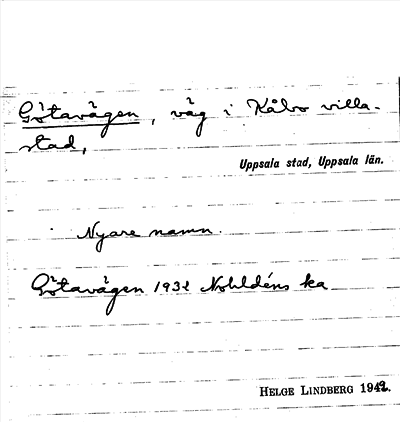 Götavägen, väg i Kåbo villa-
stad,
Uppsala stad, Uppsala län.
Nyare namn.
Götavägen 1932 Nohldéns ka
HELGE LINDBERG 1942.